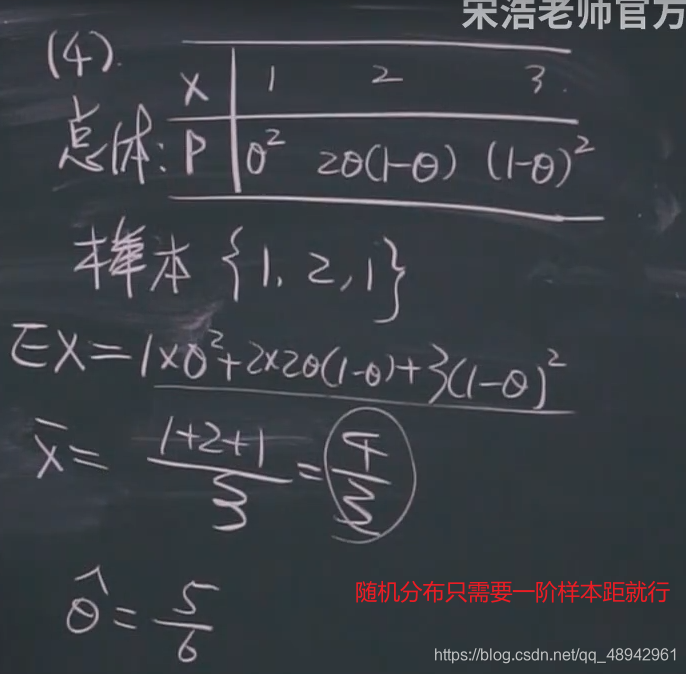 宋浩老师官方
(4).
X 1 2 3.
总体: P θ² 2θ(1-θ) (1-θ)²
样本 {1, 2, 1}
EX=1×θ²+2×2θ(1-θ)+3(1-θ)²
x̄= (1+2+1)/3 = 4/3
θ̂= 5/6
随机分布只需要一阶样本距就行
https://blog.csdn.net/qq_48942961